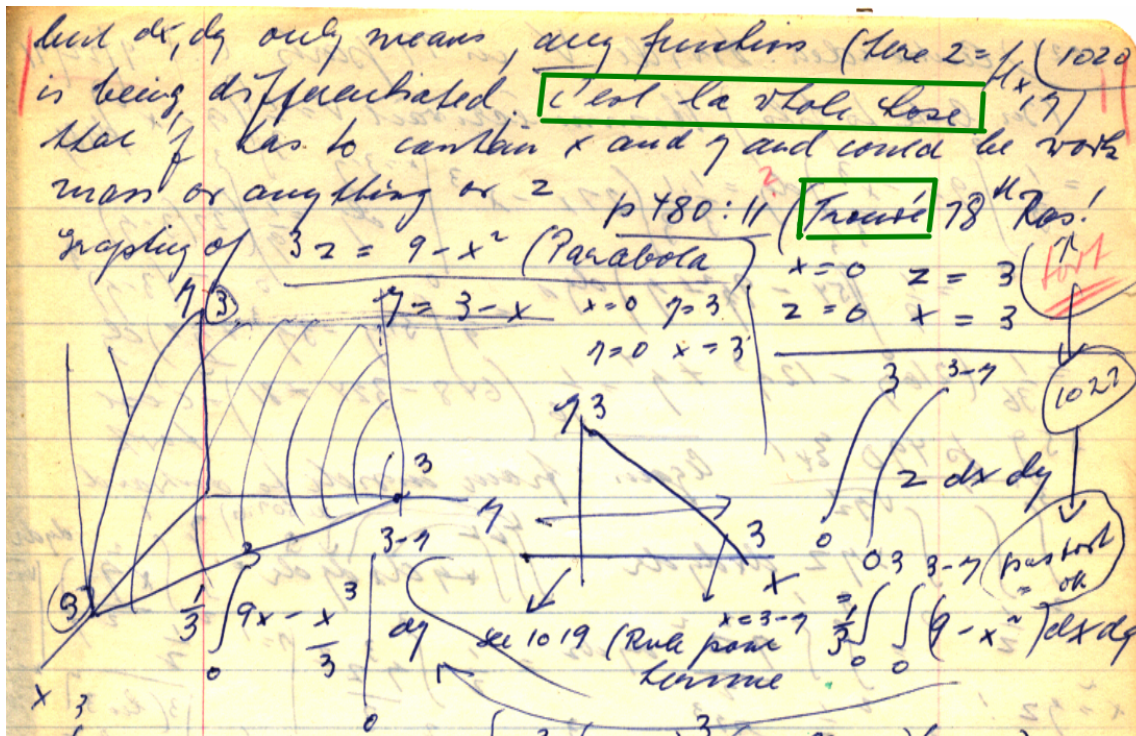 but dx, dy only means, any function (here z = f(x, y) 1020
is being differentiated. c'est la whole hose
that f has to contain x and y and could be work
mass or anything or z
p 480 : 11 ( Trouvé 78th Ros!
? 
graphing of 3z = 9 - x² (Parabola)
x = 0 z = 3 tort
y = 3 - x x = 0 y = 3 z = 0 x = 3
y = 0 x = 3
3
3 3-y
1027
y 3
3
∫ ∫ z dx dy
0 0
y
3
x
pas tort
= ok
3
x
3 3-y
1/3 ∫ 9x - x³/3 | dy
0 0
see 1019 (Rule pour
x = 3 - y
= 1/3 ∫ ∫ (9 - x²) dx dy
3 3-y
0 0
3